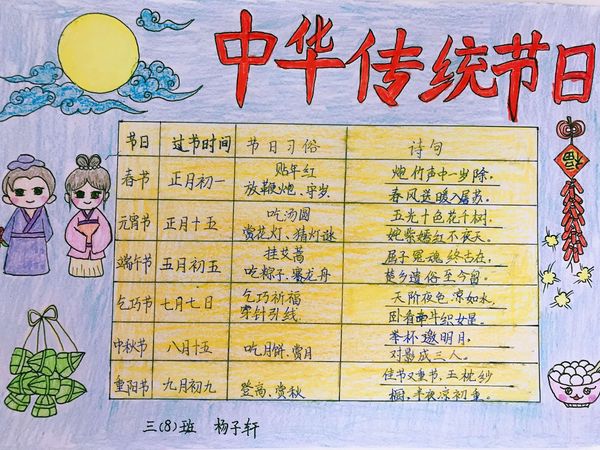 中华传统节日
福
节日 过节时间 节日习俗 诗句
春节 正月初一
贴年红
放鞭炮、守岁
炮竹声中一岁除,
春风送暖入屠苏。
元宵节 正月十五
吃汤圆
赏花灯、猜灯谜
五光十色花千树,
姹紫嫣红不夜天。
端午节 五月初五
挂艾蒿
吃粽子、赛龙舟
屈子冤魂终古在,
楚乡遗俗至今留。
乞巧节 七月七日
乞巧祈福
穿针引线
天阶夜色凉如水,
卧看牵牛织女星。
中秋节 八月十五
吃月饼、赏月
举杯邀明月,
对影成三人。
重阳节 九月初九
登高、赏秋
佳节又重节,玉枕纱
橱,半夜凉初
三(8)班 杨子轩